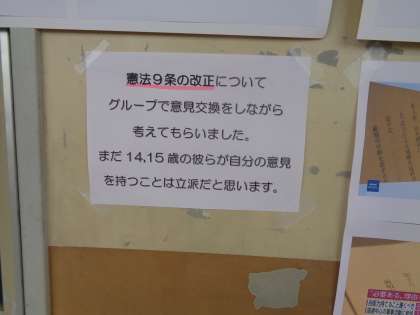 憲法9条の改正について
グループで意見交換をしながら
考えてもらいました。
まだ14,15歳の彼らが自分の意見
を持つことは立派だと思います。
"必要ある。理由